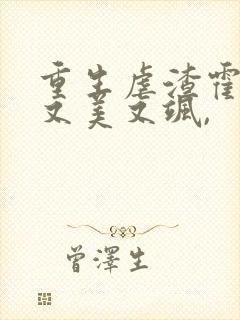 重生虐渣霍
又美又飒，
曾澤生